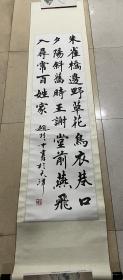 朱雀橋邊野草花烏衣巷口
夕陽斜舊時王謝堂前燕飛
入尋常百姓家 書於天津